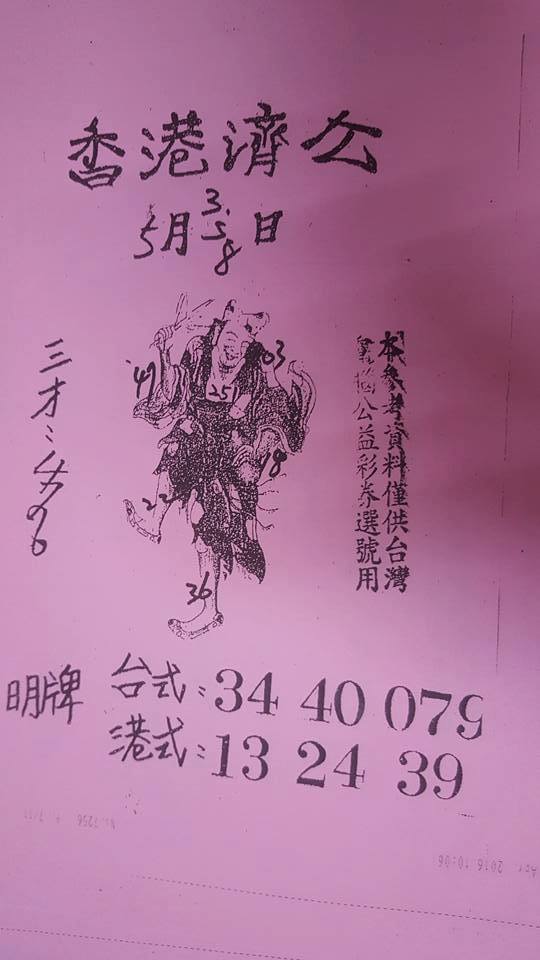 香港濟公
5月3.5.8日
本參考資料僅供台灣
公益彩券選號用
三才:
49
03
25
18
22
36
明牌
台式:34 40 079
港式:13 24 39
2016 10:06